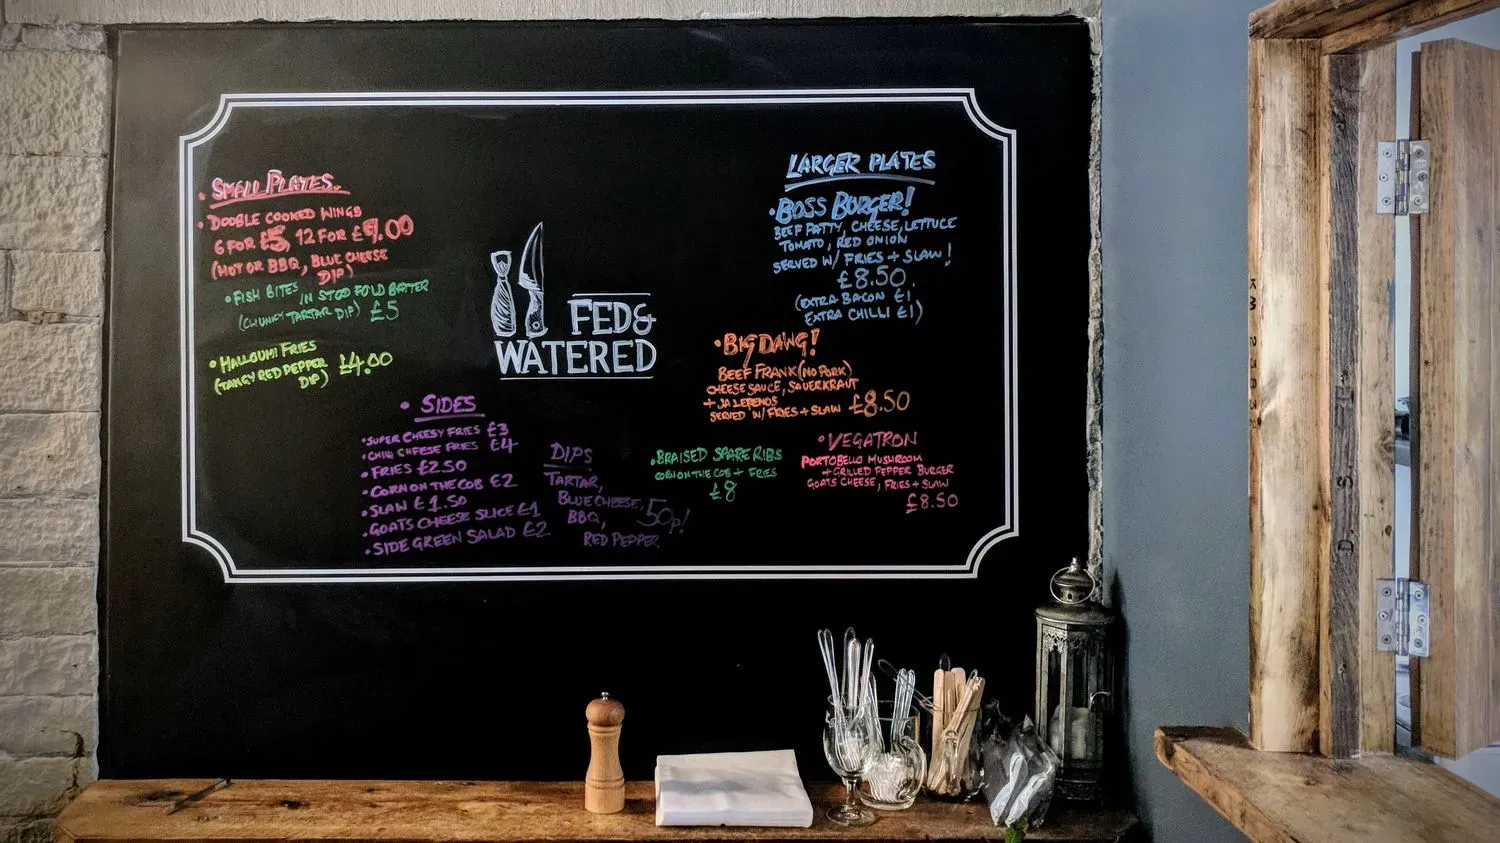 SMALL PLATES.
• DOUBLE COOKED WINGS
6 FOR £5, 12 FOR £9.00
(HOT OR BBQ, BLUE CHEESE
DIP)
• FISH BITES IN STOD FOLD BATTER
(CHUNKY TARTAR DIP) £5
• HALLOUMI FRIES
(TANGY RED PEPPER £4.00
DIP)
FED&
WATERED
• SIDES
• SUPER CHEESY FRIES £3
• CHILI CHEESE FRIES £4
• FRIES £2.50
• CORN ON THE COB £2
• SLAW £1.50
• GOATS CHEESE SLICE £1
• SIDE GREEN SALAD £2
DIPS
TARTAR,
BLUE CHEESE,
BBQ, 50p!
RED PEPPER
LARGER PLATES
• BOSS BURGER!
BEEF PATTY, CHEESE, LETTUCE
TOMATO, RED ONION
SERVED W/ FRIES + SLAW!
£8.50.
(EXTRA BACON £1,
EXTRA CHILLI £1)
• BIG DAWG!
BEEF FRANK (NO PORK)
CHEESE SAUCE, SAUERKRAUT
+ JALEPENOS
SERVED W/ FRIES + SLAW £8.50
• BRAISED SPARE RIBS
CORN ON THE COB + FRIES
£8
• VEGATRON
PORTOBELLO MUSHROOM
+ GRILLED PEPPER BURGER
GOATS CHEESE, FRIES + SLAW
£8.50